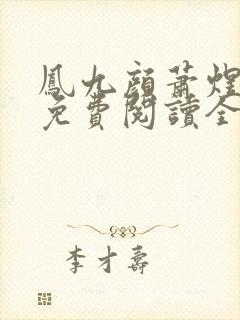 鳳九顔蕭煌
免費閱讀全
李才壽